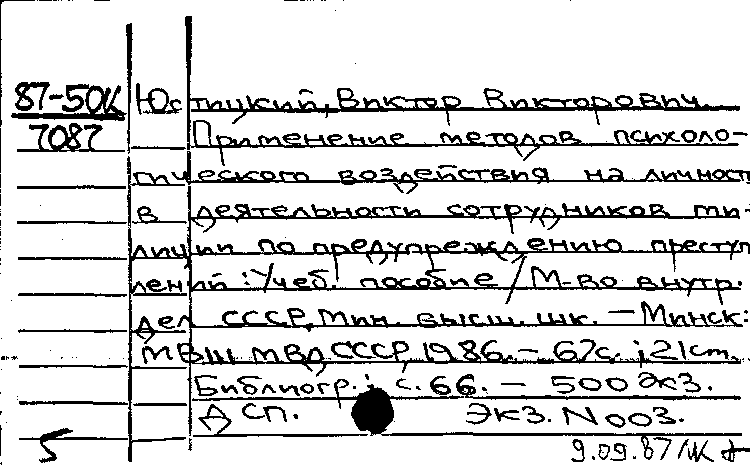 87-50К Юстицкий, Виктор Викторович.
7087 Применение методов психоло-
гического воздействия на личность
в деятельности сотрудников ми-
лиции по предупреждению преступ
лений : Учеб. пособие / М-во внутр.
дел СССР, Мин. высш. шк. – Минск:
МВШ МВД СССР, 1986. – 67с. ; 21 см.
Библиогр.: с. 66. – 500 экз.
ДСП. Экз. N 003.
5 9.09.87